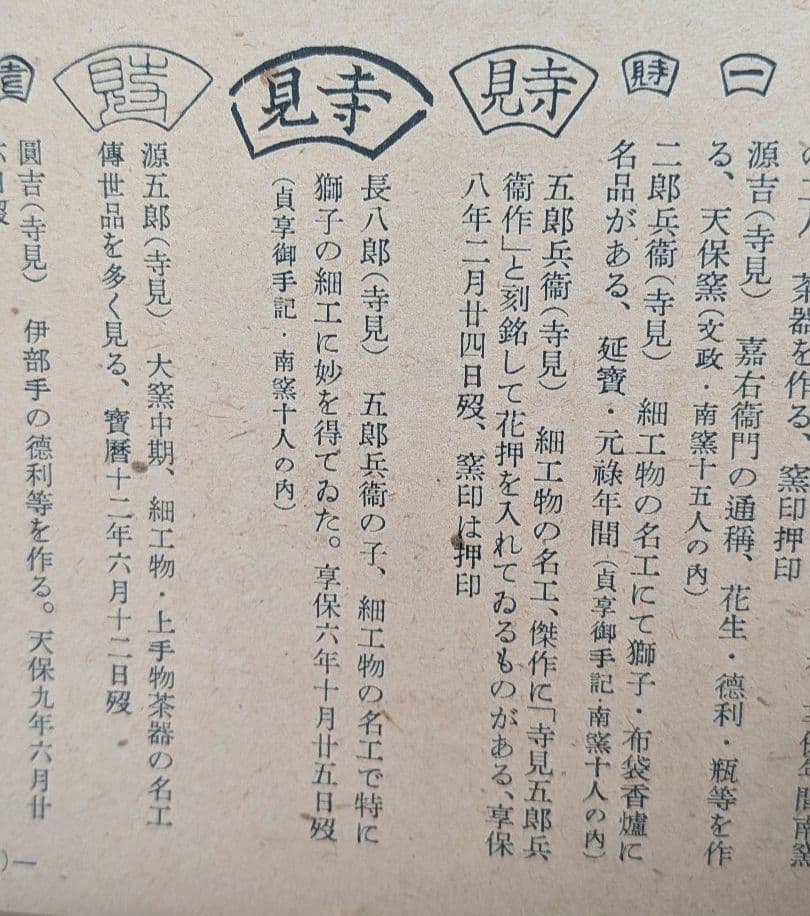 茶器を作る、窯印押印
一
源吉(寺見) 嘉右衞門の通稱、花生・德利・瓶等を作
る、天保窯(文政・南窯十五人の内)
二郎兵衞(寺見) 細工物の名工にて獅子・布袋香爐に
名品がある、延寶・元祿年間(貞享御手記・南窯十人の内)
寺見
五郎兵衞(寺見) 細工物の名工、傑作に「寺見五郎兵
衞作」と刻銘して花押を入れてゐるものがある、享保
八年二月廿四日歿、窯印は押印
寺見
長八郎(寺見) 五郎兵衞の子、細工物の名工で特に
獅子の細工に妙を得てゐた。享保六年十月廿五日歿
(貞享御手記・南窯十人の内)
源五郎(寺見) 大窯中期、細工物・上手物茶器の名工
傳世品を多く見る、寶曆十二年六月十二日歿
圓吉(寺見) 伊部手の德利等を作る。天保九年六月廿